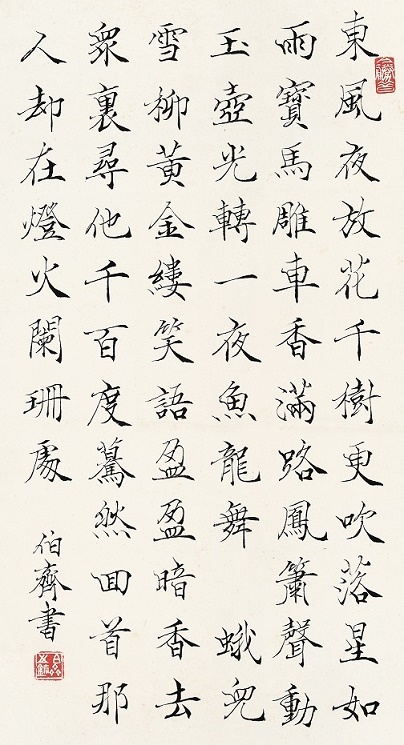 東風夜放花千樹更吹落星如
雨寶馬雕車香滿路鳳簫聲動
玉壺光轉一夜魚龍舞 蛾兒
雪柳黃金縷笑語盈盈暗香去
衆裏尋他千百度驀然回首那
人却在燈火闌珊處
伯齊書